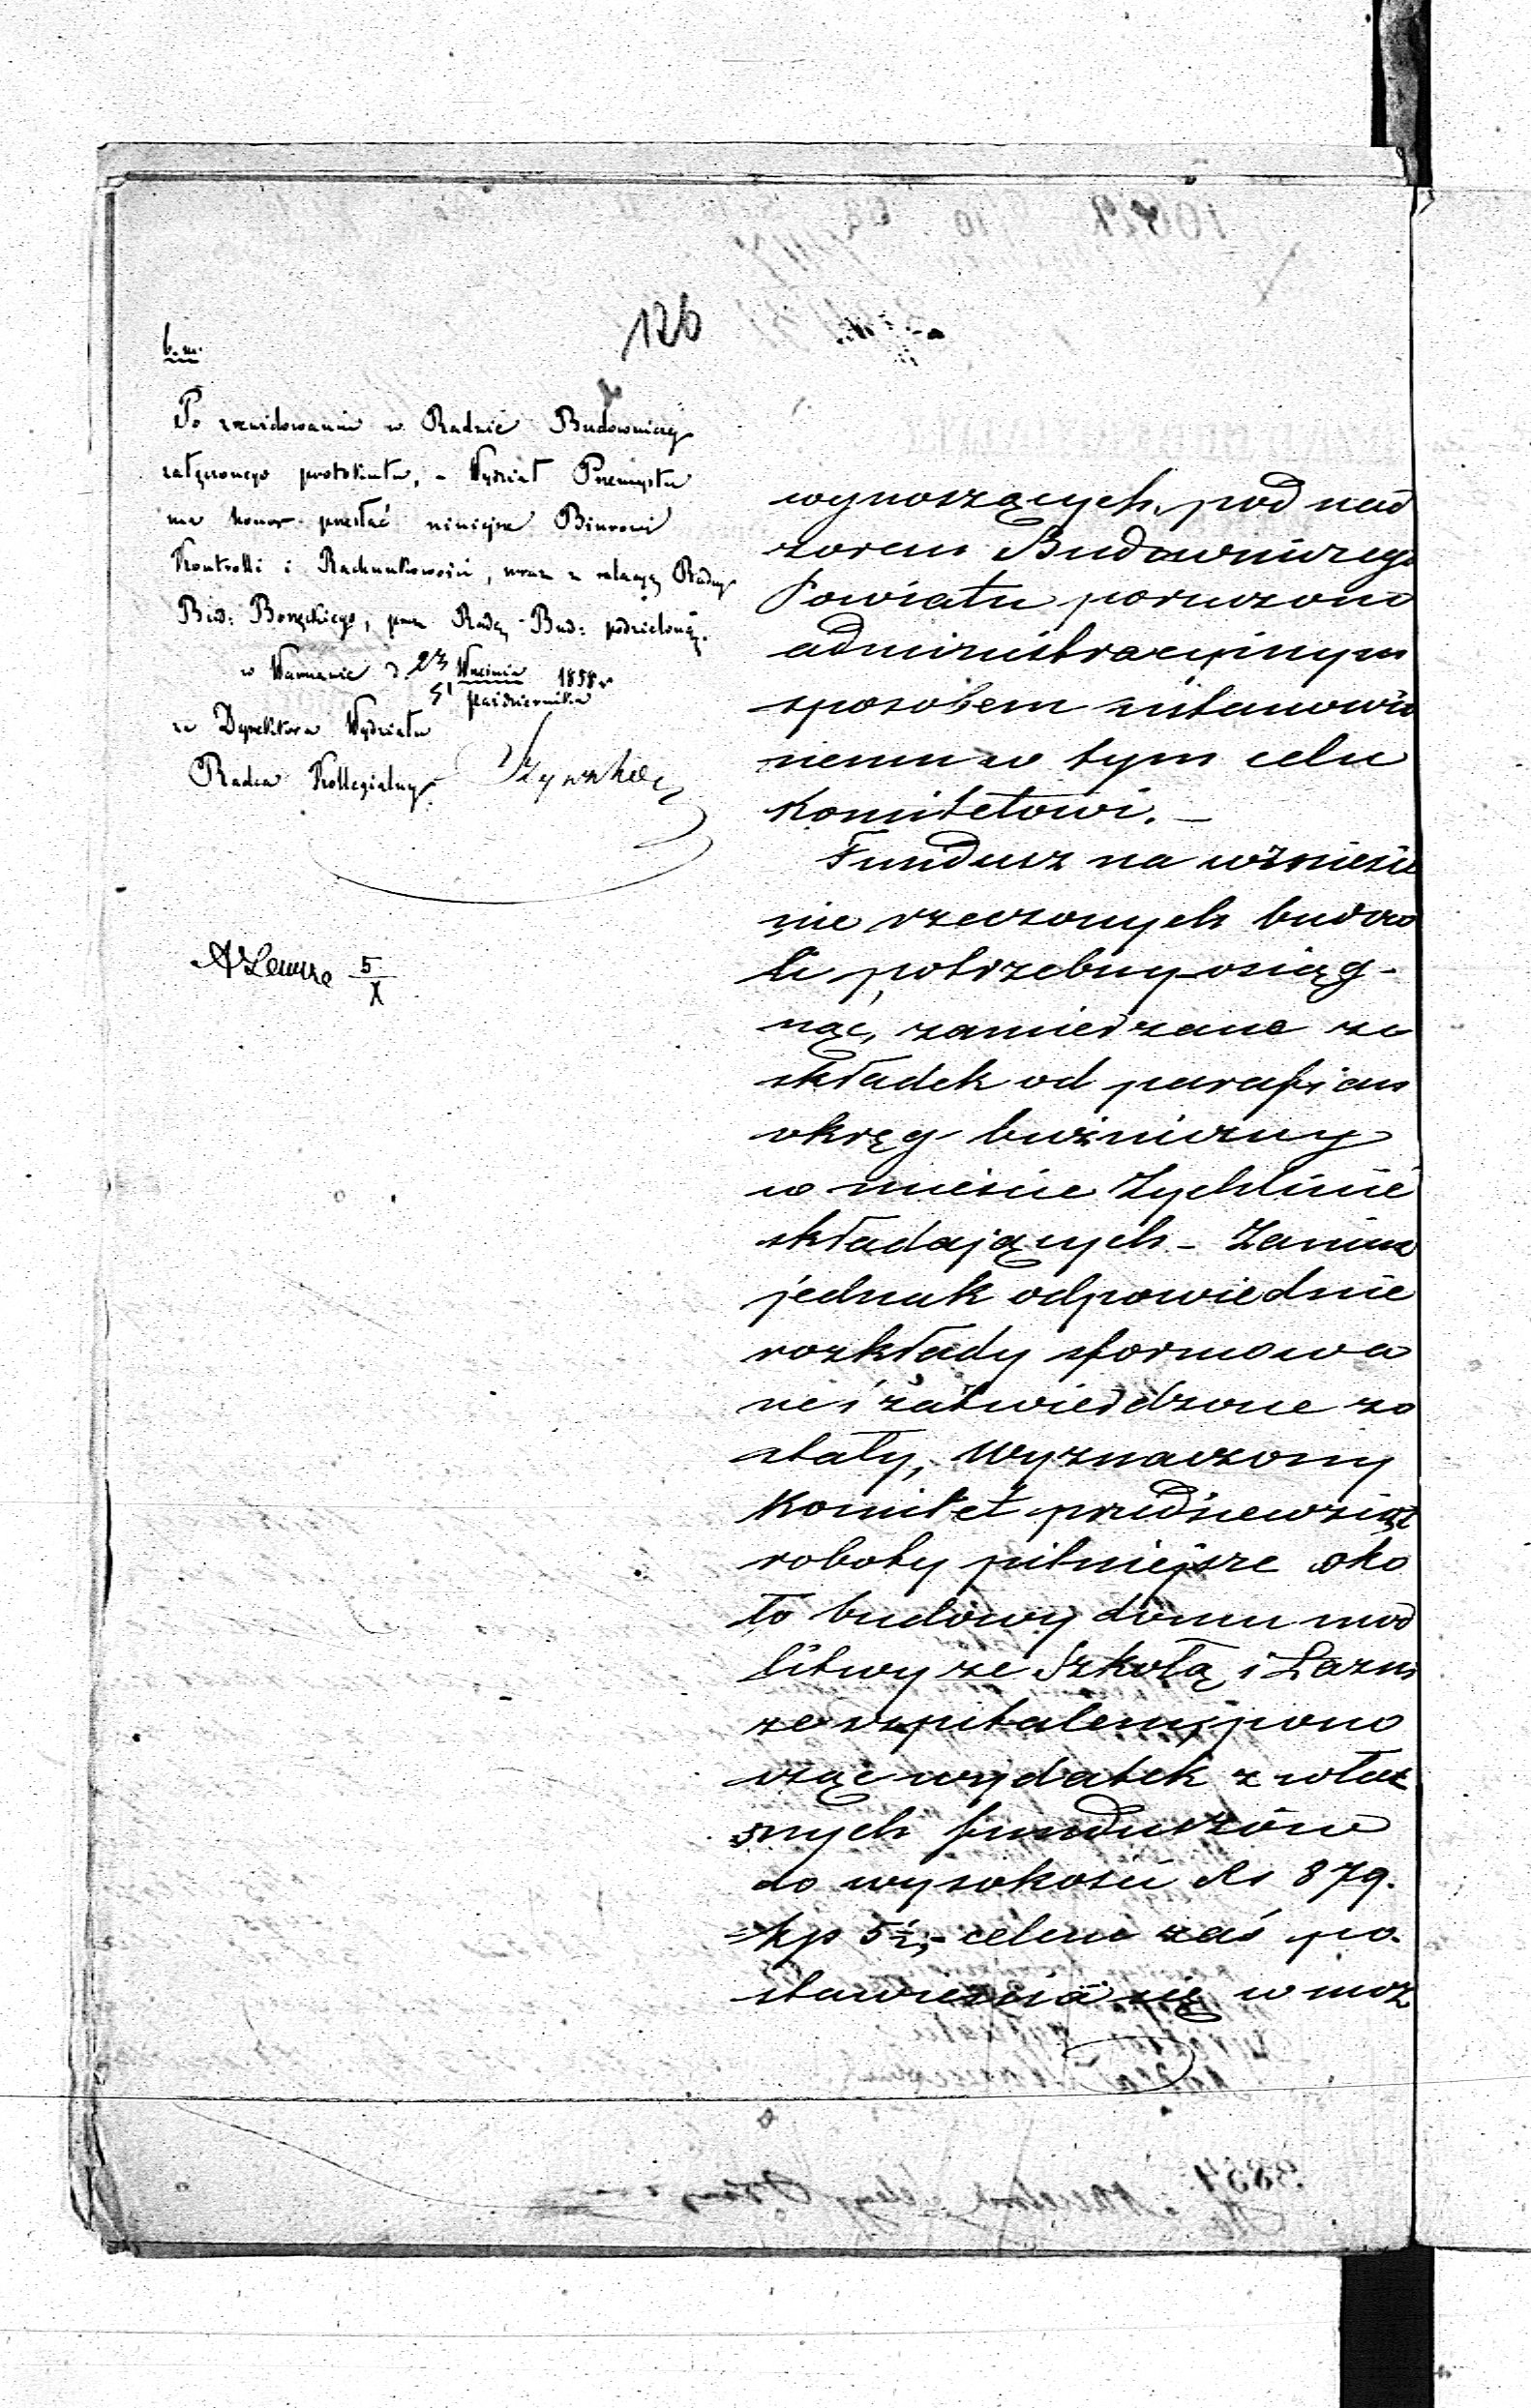 126
b. m.
Po zrewidowaniu w Radzie Budowniczej
załączonego protokułu, - Wydział Przemysłu
ma honor przesłać niniejsze Biurowi
Kontrolli i Rachunkowości, wraz z relacją Radcy
Bud: Boreckiego, przez Radę Bud: podzieloną.
w Warszawie d. 23 Września 1858 r
5 Października
za Dyrektora Wydziału
Radca Kollegialny
5
X
wynoszących, pod nad
zorem Budowniczego
Powiatu poruczono
administracyjnym
sposobem ustanowio
nemu w tym celu
Komitetowi. -
Fundusz na wzniesie
nie rzeczonych budow
li potrzebny osiąg-
nąć, zamierzane ze
składek od parafian
okręg bużniczny
w mieście Żychlinie
składających - Zanim
jednak odpowiednie
rozkłady sformowa
ne i zatwierdzone zo
stały, wyznaczony
Komitet przedsiewziął
roboty pilniejsze oko
ło budowy domu mod
litwy ze Szkołą i Łazni
ze szpitalem, pono
sząc wydatek z włas
snych funduszów
do wysokości Rs 879.
kp 5½, - celem zaś po-
stawienia się w moż